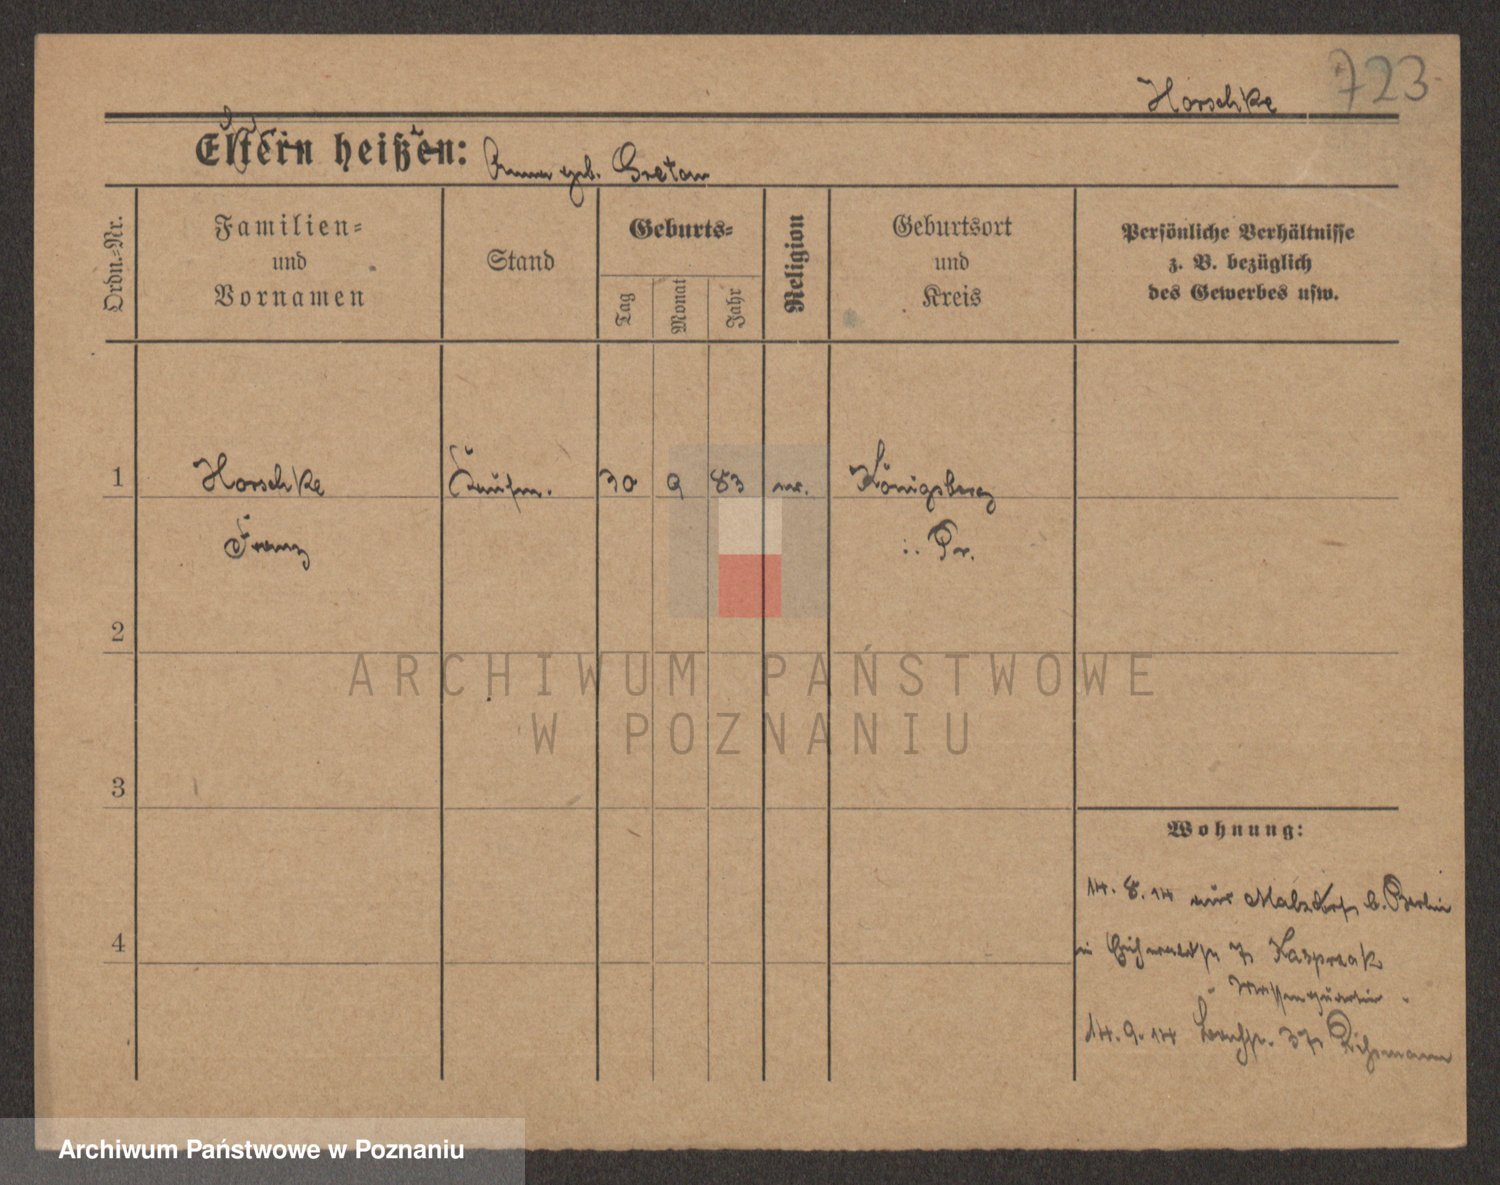 723
Horschke
Eltern heißen: geb.
Ordn.-Nr.
Familien-
und
Vornamen
Stand
Geburts-
Tag
Monat
Jahr
Religion
Geburtsort
und
Kreis
Persönliche Verhältnisse
z. B. bezüglich
des Gewerbes usw.
1 Horschke Kaufm. 30 9 83 Königsberg
Franz i. Pr.
2
3
Wohnung:
14. 8. 14 aus b. Berlin
4
in 7, Kasprzak
14. 9. 14 37,
ARCHIWUM PAŃSTWOWE
W POZNANIU
Archiwum Państwowe w Poznaniu